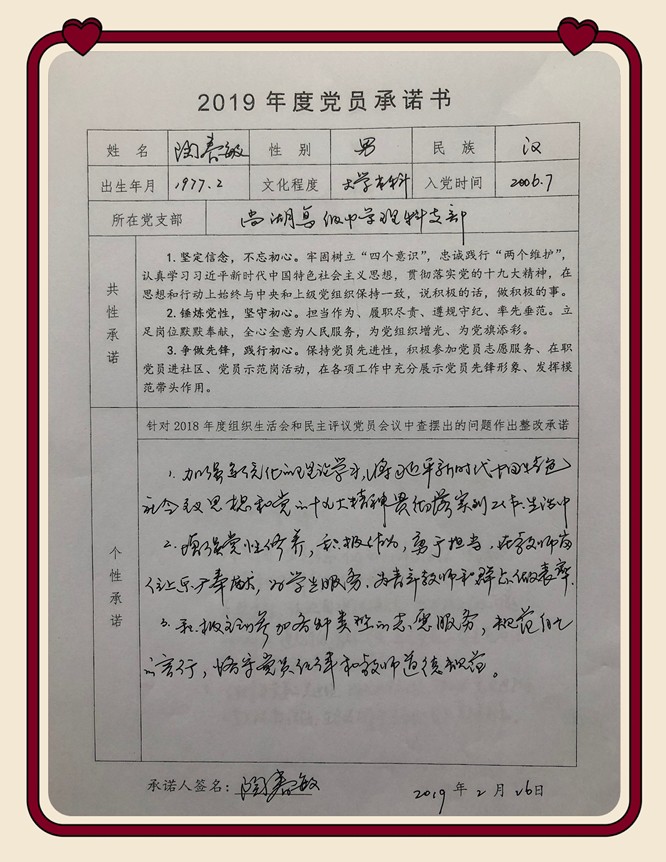 2019 年度党员承诺书
姓 名 陶春敏 性 别 男 民 族 汉
出生年月 1977.2 文化程度 大学本科 入党时间 2006.7
所在党支部 尚湖高级中学理科支部
共性承诺
1. 坚定信念，不忘初心。牢固树立“四个意识”，忠诚践行“两个维护”，
认真学习习近平新时代中国特色社会主义思想，贯彻落实党的十九大精神，在
思想和行动上始终与中央和上级党组织保持一致，说积极的话，做积极的事。
2. 锤炼党性，坚守初心。担当作为、履职尽责、遵规守纪、率先垂范。立
足岗位默默奉献，全心全意为人民服务，为党组织增光、为党旗添彩。
3. 争做先锋，践行初心。保持党员先进性，积极参加党员志愿服务、在职
党员进社区、党员示范岗活动，在各项工作中充分展示党员先锋形象、发挥模
范带头作用。
个性承诺
针对 2018 年度组织生活会和民主评议党员会议中查摆出的问题作出整改承诺
1. 加强系统化的理论学习，将习近平新时代中国特色
社会主义思想和党的十九大精神贯彻落实到工作生活中
2. 增强党性修养，积极作为，勇于担当，在教师岗
位上乐于奉献，为学生服务，为青年教师和群众做表率.
3. 积极主动参加各种类型的志愿服务，规范自己
的言行，恪守党员纪律和教师道德规范。
承诺人签名：陶春敏
2019 年 2 月 26日